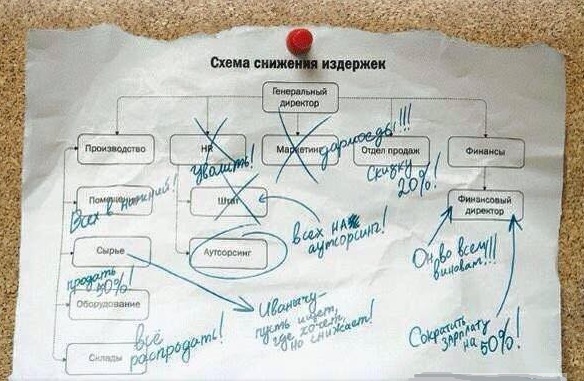 Схема снижения издержек
Генеральный
директор
Производство
HR
Маркетинг
Отдел продаж
Финансы
Уволить!
дармоеды!!!
Скидку
20%!
Помещения
Всех в нижний!
Штат
Финансовый
директор
всех на
аутсорсинг!
Сырье
Аутсорсинг
Он во всём
виноват!!!
продать
Оборудование
Иванычу -
пусть ищет,
где хочет,
но снижает!
Склады
всё
распродать!
Сократить
зарплату
на 50%!